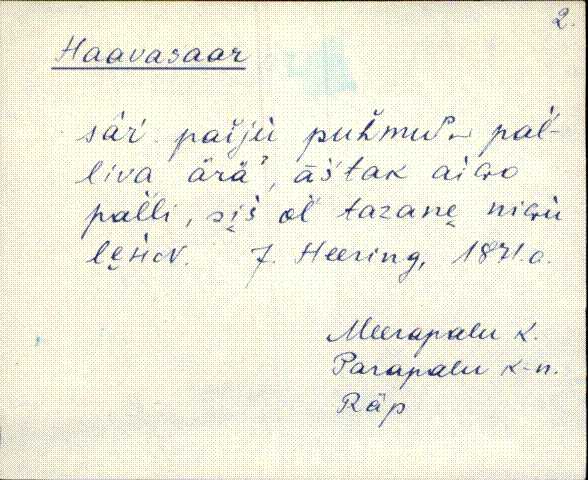 2.
Haavasaar
sä̀r paĭjù puhmuᵊ- pal̆-
liva ärä', āštak aiɢo
pal̆li, si̮š ol̆ tazane̮ niɢù
J. Heering, 1871.a.
Meerapalu k.
Parapalu k-n.
Räp